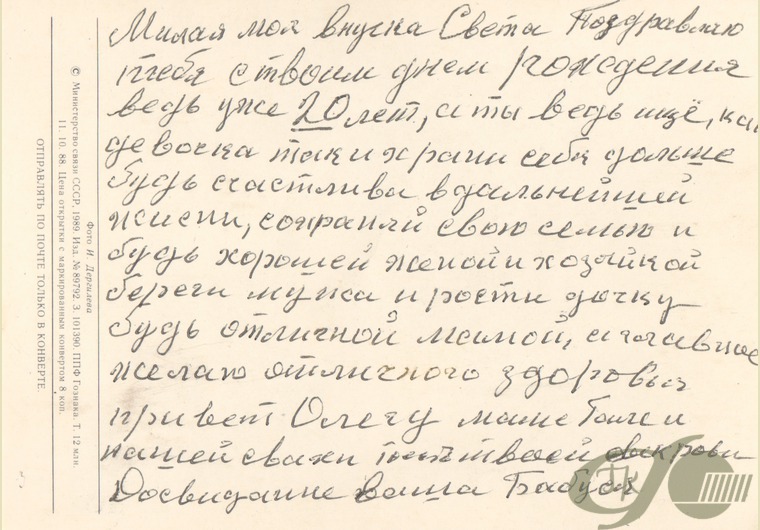 Милая моя внучка Света Поздравляю
тебя с твоим днем рождения
ведь уже 20 лет, а ты ведь ищё, как
девочка так и храни себя дальше
будь счастлива в дальнейшей
жисни, сохраняй свою семью и
будь хорошей женой и хозяйкой
береги мужа и рости дочку
будь отличной мамой, а главное
желаю отличного здоровья
привет Олегу маме и
нашей свахи твоей свекрови
Досвидание ваша Бабуся
Фото И. Дергилева
© Министерство связи СССР. 1989. Изд. № 89792. З. 101390. ППФ Гознака. Т. 12 млн.
11. 10. 88. Цена открытки с маркированным конвертом 8 коп.
ОТПРАВЛЯТЬ ПО ПОЧТЕ ТОЛЬКО В КОНВЕРТЕ.